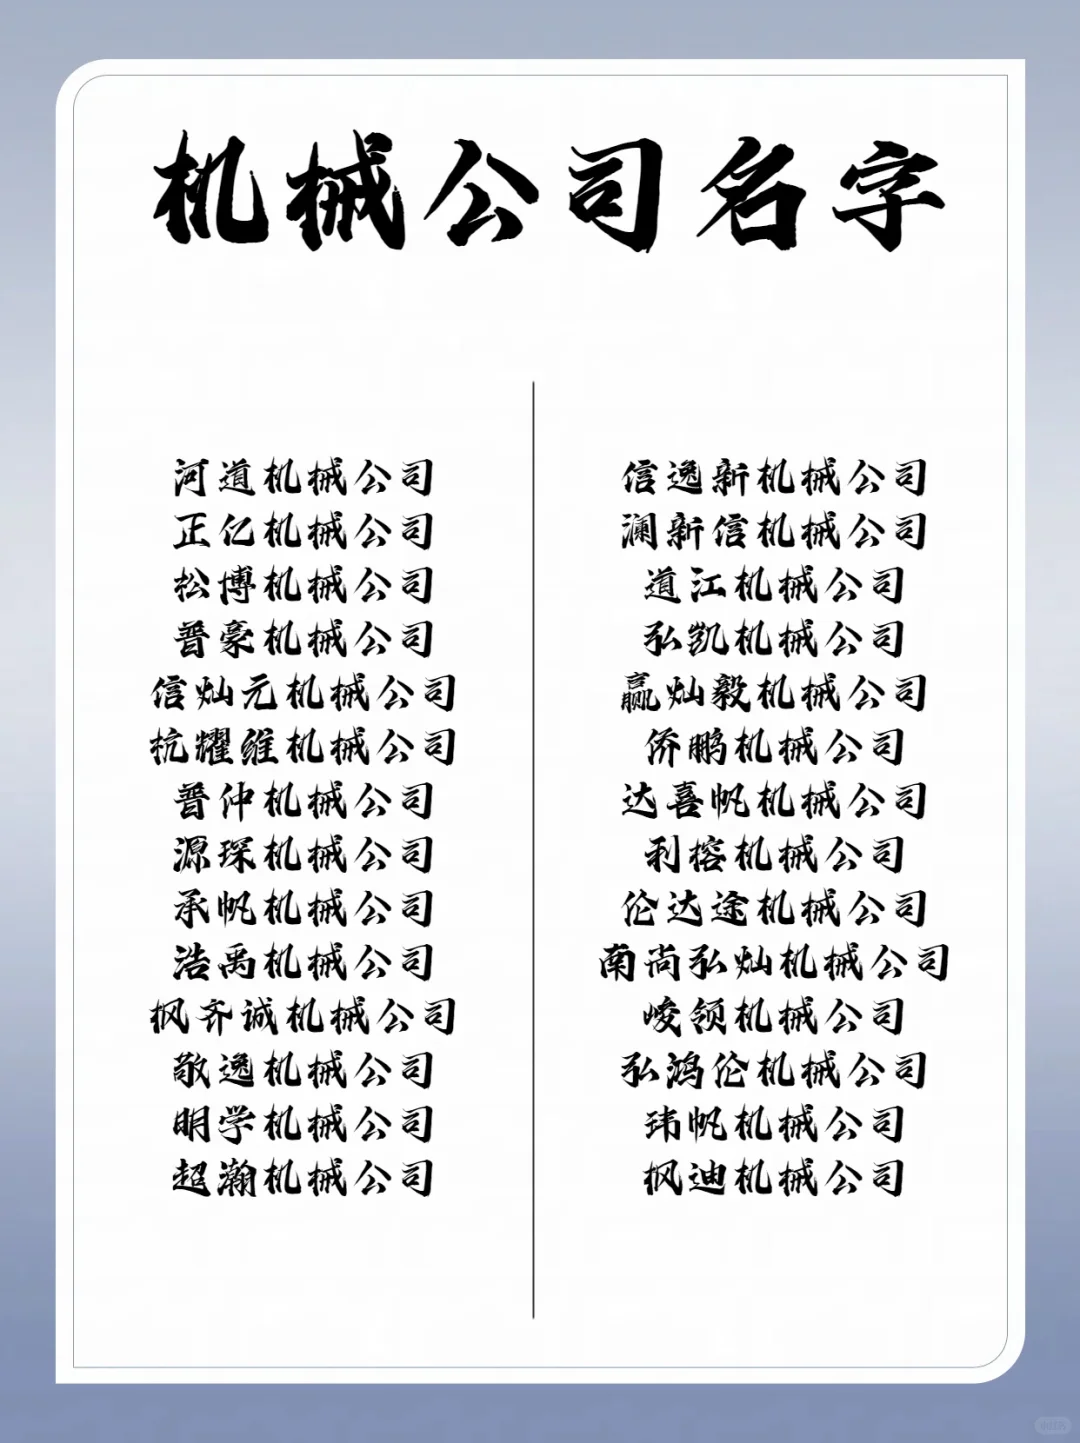 机械公司名字
河道机械公司
正亿机械公司
松博机械公司
普豪机械公司
信灿元机械公司
杭耀维机械公司
晋仲机械公司
源琛机械公司
承帆机械公司
浩禹机械公司
枫齐诚机械公司
敬逸机械公司
明学机械公司
超瀚机械公司
信逸新机械公司
澜新信机械公司
道江机械公司
弘凯机械公司
赢灿毅机械公司
侨鹏机械公司
达喜帆机械公司
利榕机械公司
伦达途机械公司
南尚弘灿机械公司
峻领机械公司
弘鸿伦机械公司
玮帆机械公司
枫迪机械公司